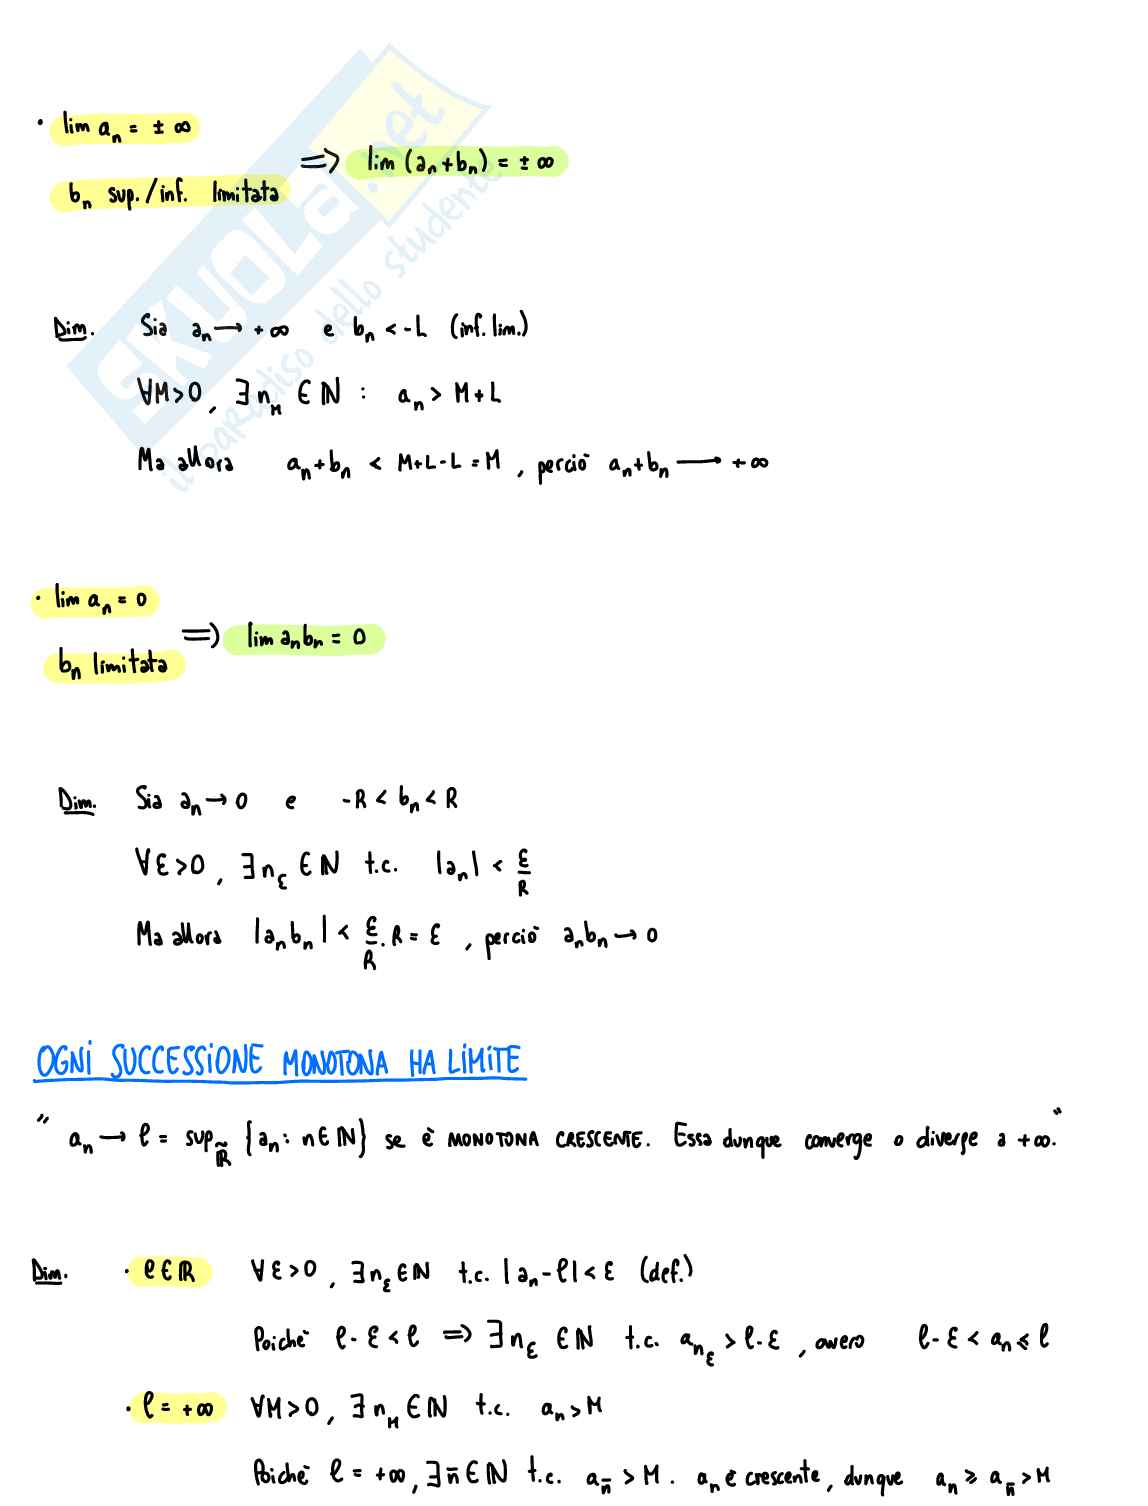 · lim aₙ = ± ∞
bₙ sup./inf. limitata
⟹ lim (aₙ + bₙ) = ± ∞
Dim. Sia aₙ → + ∞ e bₙ < -L (inf. lim.)
∀M>0, ∃ n_M ∈ ℕ : aₙ > M+L
Ma allora aₙ+bₙ < M+L-L = M, perciò aₙ+bₙ → + ∞
· lim aₙ = 0
bₙ limitata
⟹ lim aₙbₙ = 0
Dim. Sia aₙ → 0 e -R < bₙ < R
∀ε>0, ∃ n_ε ∈ ℕ t.c. |aₙ| < ε/R
Ma allora |aₙbₙ| < ε/R · R = ε, perciò aₙbₙ → 0
OGNI SUCCESSIONE MONOTONA HA LIMITE
" aₙ → ℓ = sup_ℝ̃ {aₙ : n ∈ ℕ} se è MONOTONA CRESCENTE. Essa dunque converge o diverge a +∞. "
Dim. · ℓ ∈ ℝ ∀ε>0, ∃ n_ε ∈ ℕ t.c. |aₙ - ℓ| < ε (def.)
Poichè ℓ - ε < ℓ ⟹ ∃ n_ε ∈ ℕ t.c. a_{n_ε} > ℓ - ε, ovvero ℓ - ε < aₙ ⩽ ℓ
· ℓ = +∞ ∀M>0, ∃ n_M ∈ ℕ t.c. aₙ > M
Poichè ℓ = +∞, ∃ n̄ ∈ ℕ t.c. a_n̄ > M. aₙ è crescente, dunque aₙ ⩾ a_n̄ > M
SKUOLA.net
il paradiso dello studente